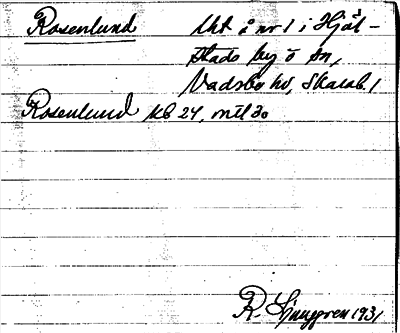 Rosenlund Lht å nr 1 i Hjäl-
stads by o sn,
Vadsbo hd, Skarab. l
Rosenlund kb 24, mtl do
R. Ljunggren 1931